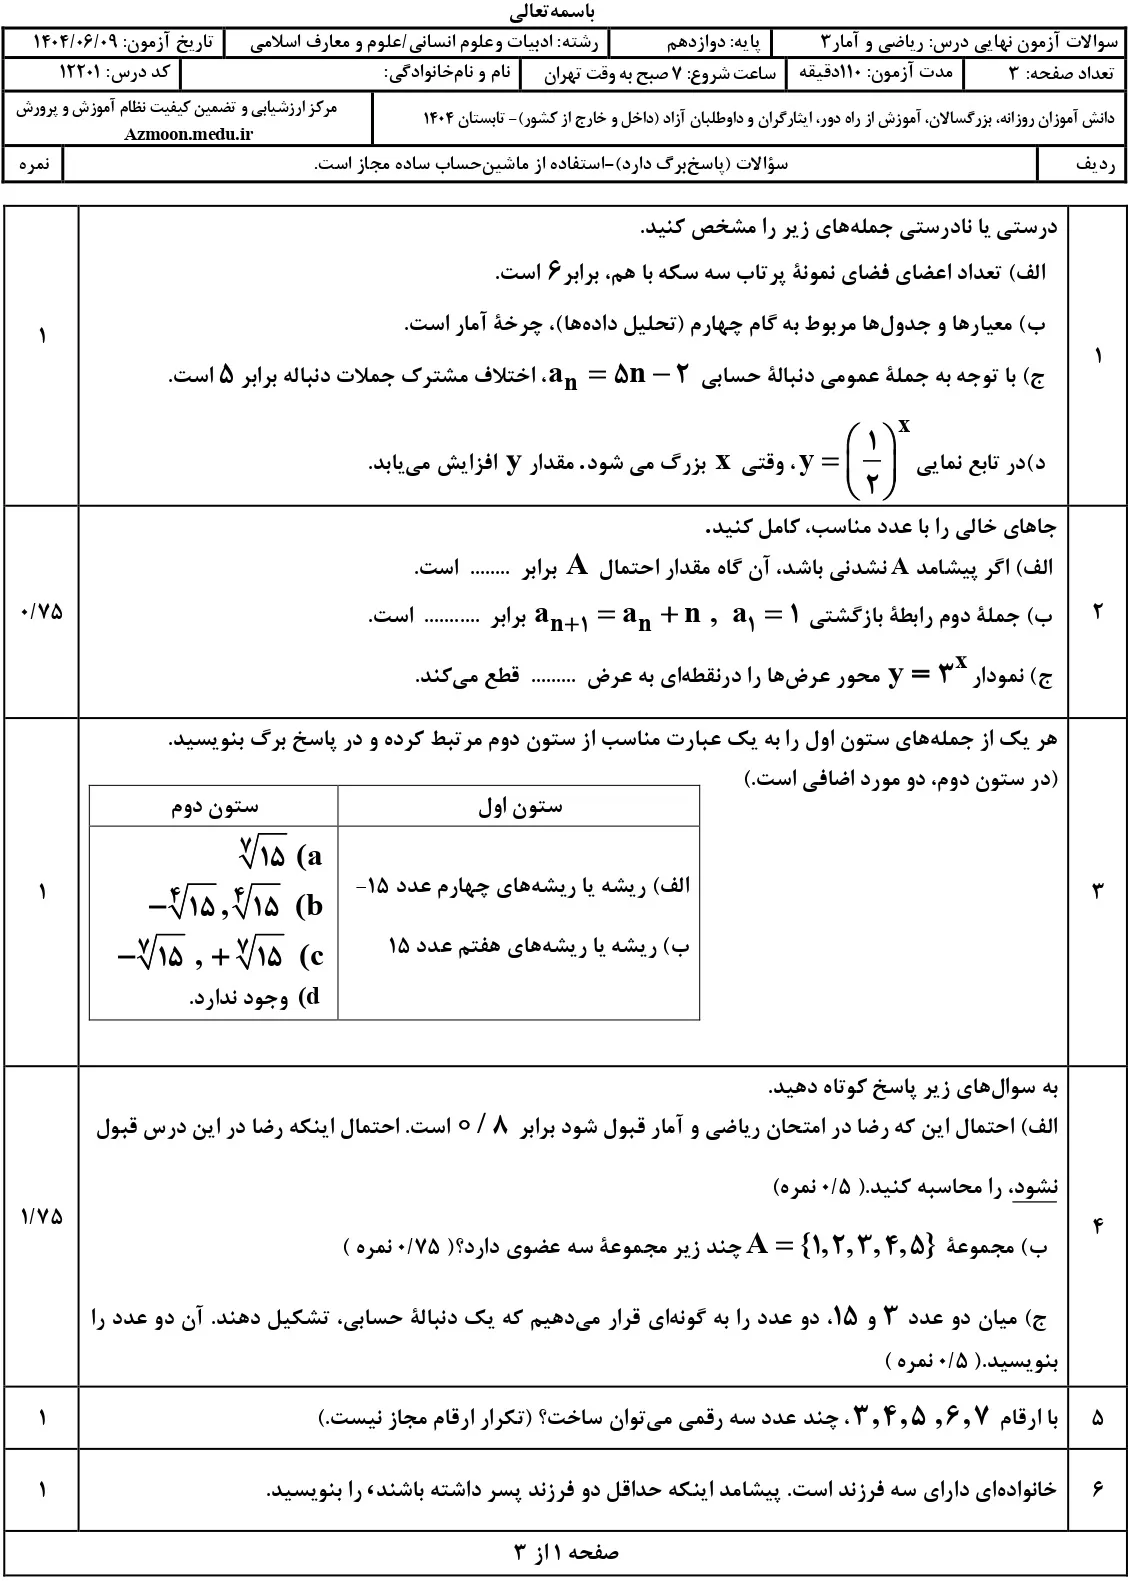 باسمه‌تعالی
سوالات آزمون نهایی درس: ریاضی و آمار۳ پایه: دوازدهم رشته: ادبیات وعلوم انسانی/علوم و معارف اسلامی تاریخ آزمون: ۱۴۰۴/۰۶/۰۹
تعداد صفحه: ۳ مدت آزمون: ۱۱۰دقیقه ساعت شروع: ۷ صبح به وقت تهران نام و نام‌خانوادگی: کد درس: ۱۲۲۰۱
دانش آموزان روزانه، بزرگسالان، آموزش از راه دور، ایثارگران و داوطلبان آزاد (داخل و خارج از کشور)- تابستان ۱۴۰۴ مرکز ارزشیابی و تضمین کیفیت نظام آموزش و پرورش
Azmoon.medu.ir
ردیف سؤالات (پاسخ‌برگ دارد)-استفاده از ماشین‌حساب ساده مجاز است. نمره
۱ درستی یا نادرستی جمله‌های زیر را مشخص کنید. ۱
الف) تعداد اعضای فضای نمونۀ پرتاب سه سکه با هم، برابر۶ است.
ب) معیارها و جدول‌ها مربوط به گام چهارم (تحلیل داده‌ها)، چرخۀ آمار است.
ج) با توجه به جملۀ عمومی دنبالۀ حسابی aₙ = ۵n − ۲، اختلاف مشترک جملات دنباله برابر ۵ است.
د)در تابع نمایی y = (۱/۲)^x، وقتی x بزرگ می شود. مقدار y افزایش می‌یابد.
۲ جاهای خالی را با عدد مناسب، کامل کنید. ۰/۷۵
الف) اگر پیشامد A نشدنی باشد، آن گاه مقدار احتمال A برابر ........ است.
ب) جملۀ دوم رابطۀ بازگشتی aₙ₊₁ = aₙ + n , a₁ = ۱ برابر ........... است.
ج) نمودار y = ۳^x محور عرض‌ها را درنقطه‌ای به عرض ......... قطع می‌کند.
۳ هر یک از جمله‌های ستون اول را به یک عبارت مناسب از ستون دوم مرتبط کرده و در پاسخ برگ بنویسید. ۱
(در ستون دوم، دو مورد اضافی است.)
ستون اول ستون دوم
الف) ریشه یا ریشه‌های چهارم عدد ۱۵-
ب) ریشه یا ریشه‌های هفتم عدد ۱۵
a) ⁷√۱۵
b) −⁴√۱۵ , ⁴√۱۵
c) −⁷√۱۵ , +⁷√۱۵
d) وجود ندارد.
۴ به سوال‌های زیر پاسخ کوتاه دهید. ۱/۷۵
الف) احتمال این که رضا در امتحان ریاضی و آمار قبول شود برابر ۰/۸ است. احتمال اینکه رضا در این درس قبول
نشود، را محاسبه کنید.( ۰/۵ نمره)
ب) مجموعۀ A = {۱,۲,۳,۴,۵} چند زیر مجموعۀ سه عضوی دارد؟( ۰/۷۵ نمره )
ج) میان دو عدد ۳ و ۱۵، دو عدد را به گونه‌ای قرار می‌دهیم که یک دنبالۀ حسابی، تشکیل دهند. آن دو عدد را
بنویسید.( ۰/۵ نمره )
۵ با ارقام ۳,۴,۵ ,۶,۷، چند عدد سه رقمی می‌توان ساخت؟ (تکرار ارقام مجاز نیست.) ۱
۶ خانواده‌ای دارای سه فرزند است. پیشامد اینکه حداقل دو فرزند پسر داشته باشند، را بنویسید. ۱
صفحه ۱ از ۳